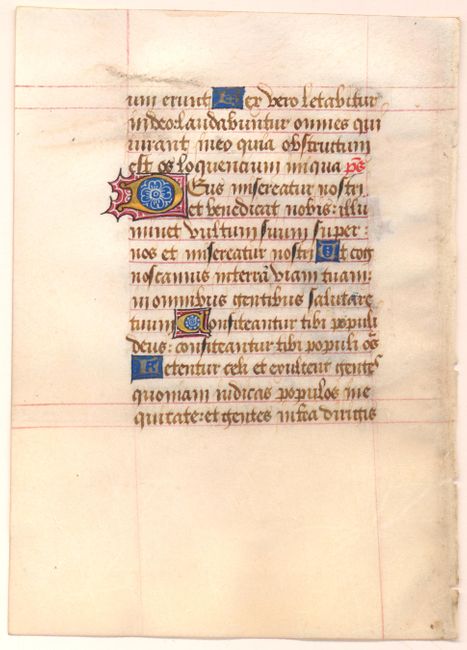 um erunt Rex vero letabitur
in deo laudabuntur omnes qui
iurant in eo quia obstructum
est os loquencium iniqua p̄s
Deus misereatur nostri
et benedicat nobis: illu
minet vultum suum super:
nos et misereatur nostri Ut cog
noscamus in terrā viam tuam:
in omnibus gentibus salutare
tuum Confiteantur tibi populi
deus: confiteantur tibi populi ōs
Letentur celi et exultent gentes
quoniam iudicas populos in e
quitate: et gentes in t̄ra dirigis